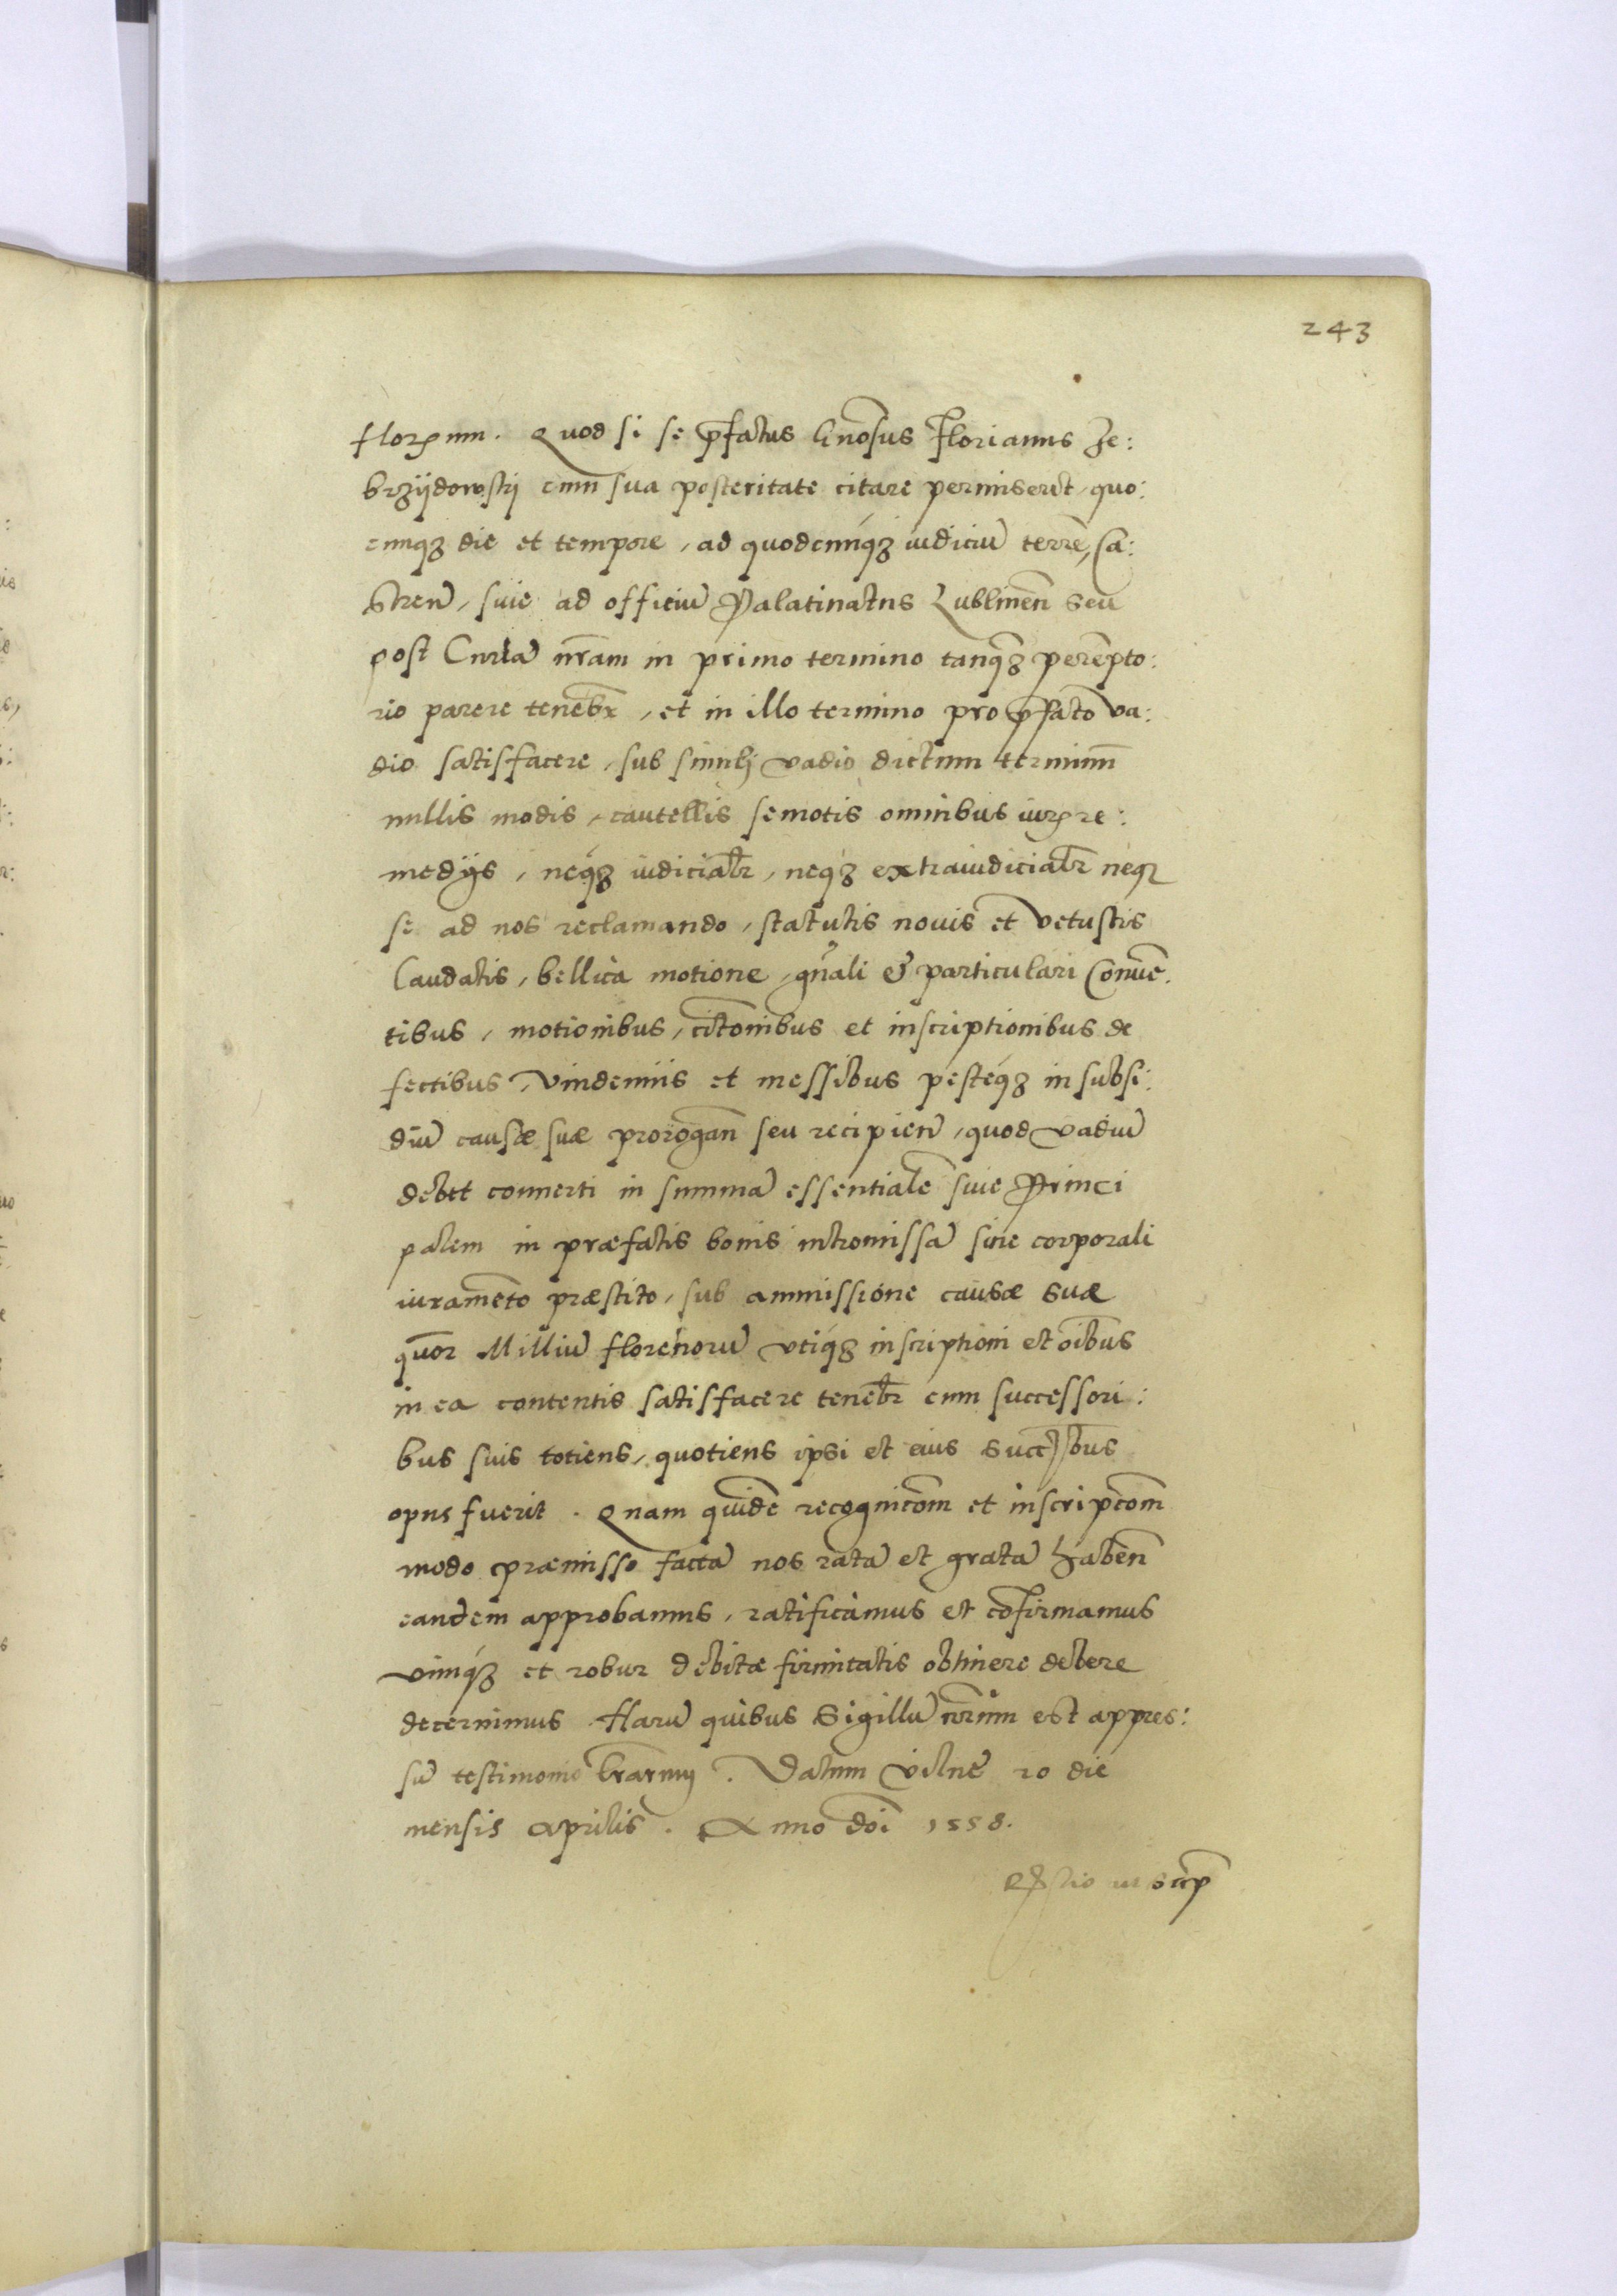 243
florenum. Quod si se p̄fatus Gn̄osus Florianus Ze:
brzÿdowskÿ cum sua posteritate citare permiserit, quo:
cunqȝ die et tempore, ad quodcunqȝ iudiciū terrē, Ca:
stren̄, siue ad officiū Palatinatus Lublinen̄ seu
post Curiā nr̄am in primo termino tanqȝ perēpto:
rio parere tenebr̄, et in illo termino pro p̄fato va:
dio satisfacere, sub simili vadio dictum terminum̄
nullis modis, cautellis semotis omnibus iurȩ re:
medÿs, neqȝ iudicialr̄, neqȝ extraiudicialr̄ neqȝ
se ad nos reclamando, statutis nouis et vetustis
laudatis, bellica motione, gn̄ali & particulari Conuē.
tibus, motionibus, citōnibus et inscriptionibus de
fectibus, vindemiis et messibus pesteqȝ in subsi:
diū causæ suæ prorogan̄ seu recipien̄, quod vadiū
debet conuerti in summā essentialē siue Princi
palem in præfatis bonis intromissā sine corporali
iuramēto præstito, sub ammissione causæ suæ
quor̄ Milliū florenorū vtiqȝ inscriptioni et oībus
in ea contentis satisfacere tenebr̄ cum successori:
bus suis totiens, quotiens ipsi et eius succ̄sbus
opus fuerit. Quam quidē recognitōm et inscriptōm
modo præmisso factā nos ratā et gratā haben̄
eandem approbamus, ratificamus et cōfirmamus
vimqȝ et robur debitæ firmitatis obtinere debere
decernimus. Harū quibus Sigillū nr̄um est appres:
sū testimonio lr̄arum. Datum Vilnē 20 die
mensis Aprilis. Anno doi 1558.